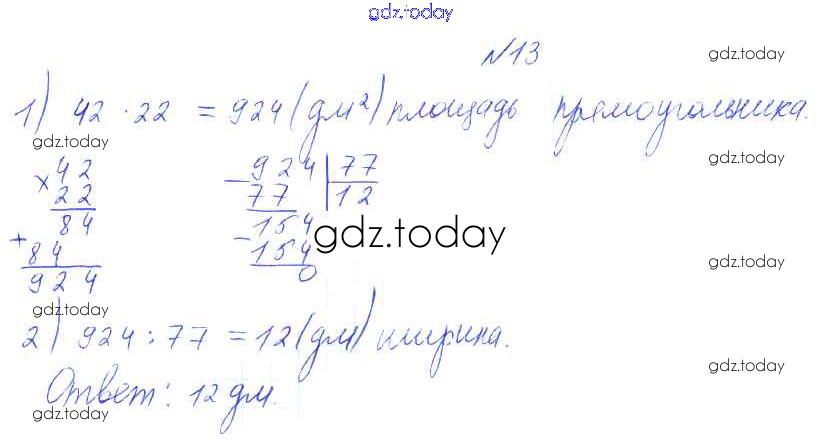 gdz.today
№13
gdz.today
1) 42 · 22 = 924 (дм²) площадь прямоугольника.
gdz.today
× 42
22
84
+ 84
924
gdz.today
− 924 | 77
77 | 12
154
− 154
0
gdz.today
gdz.today
gdz.today
2) 924 : 77 = 12 (дм) ширина.
gdz.today
Ответ: 12 дм.
gdz.today